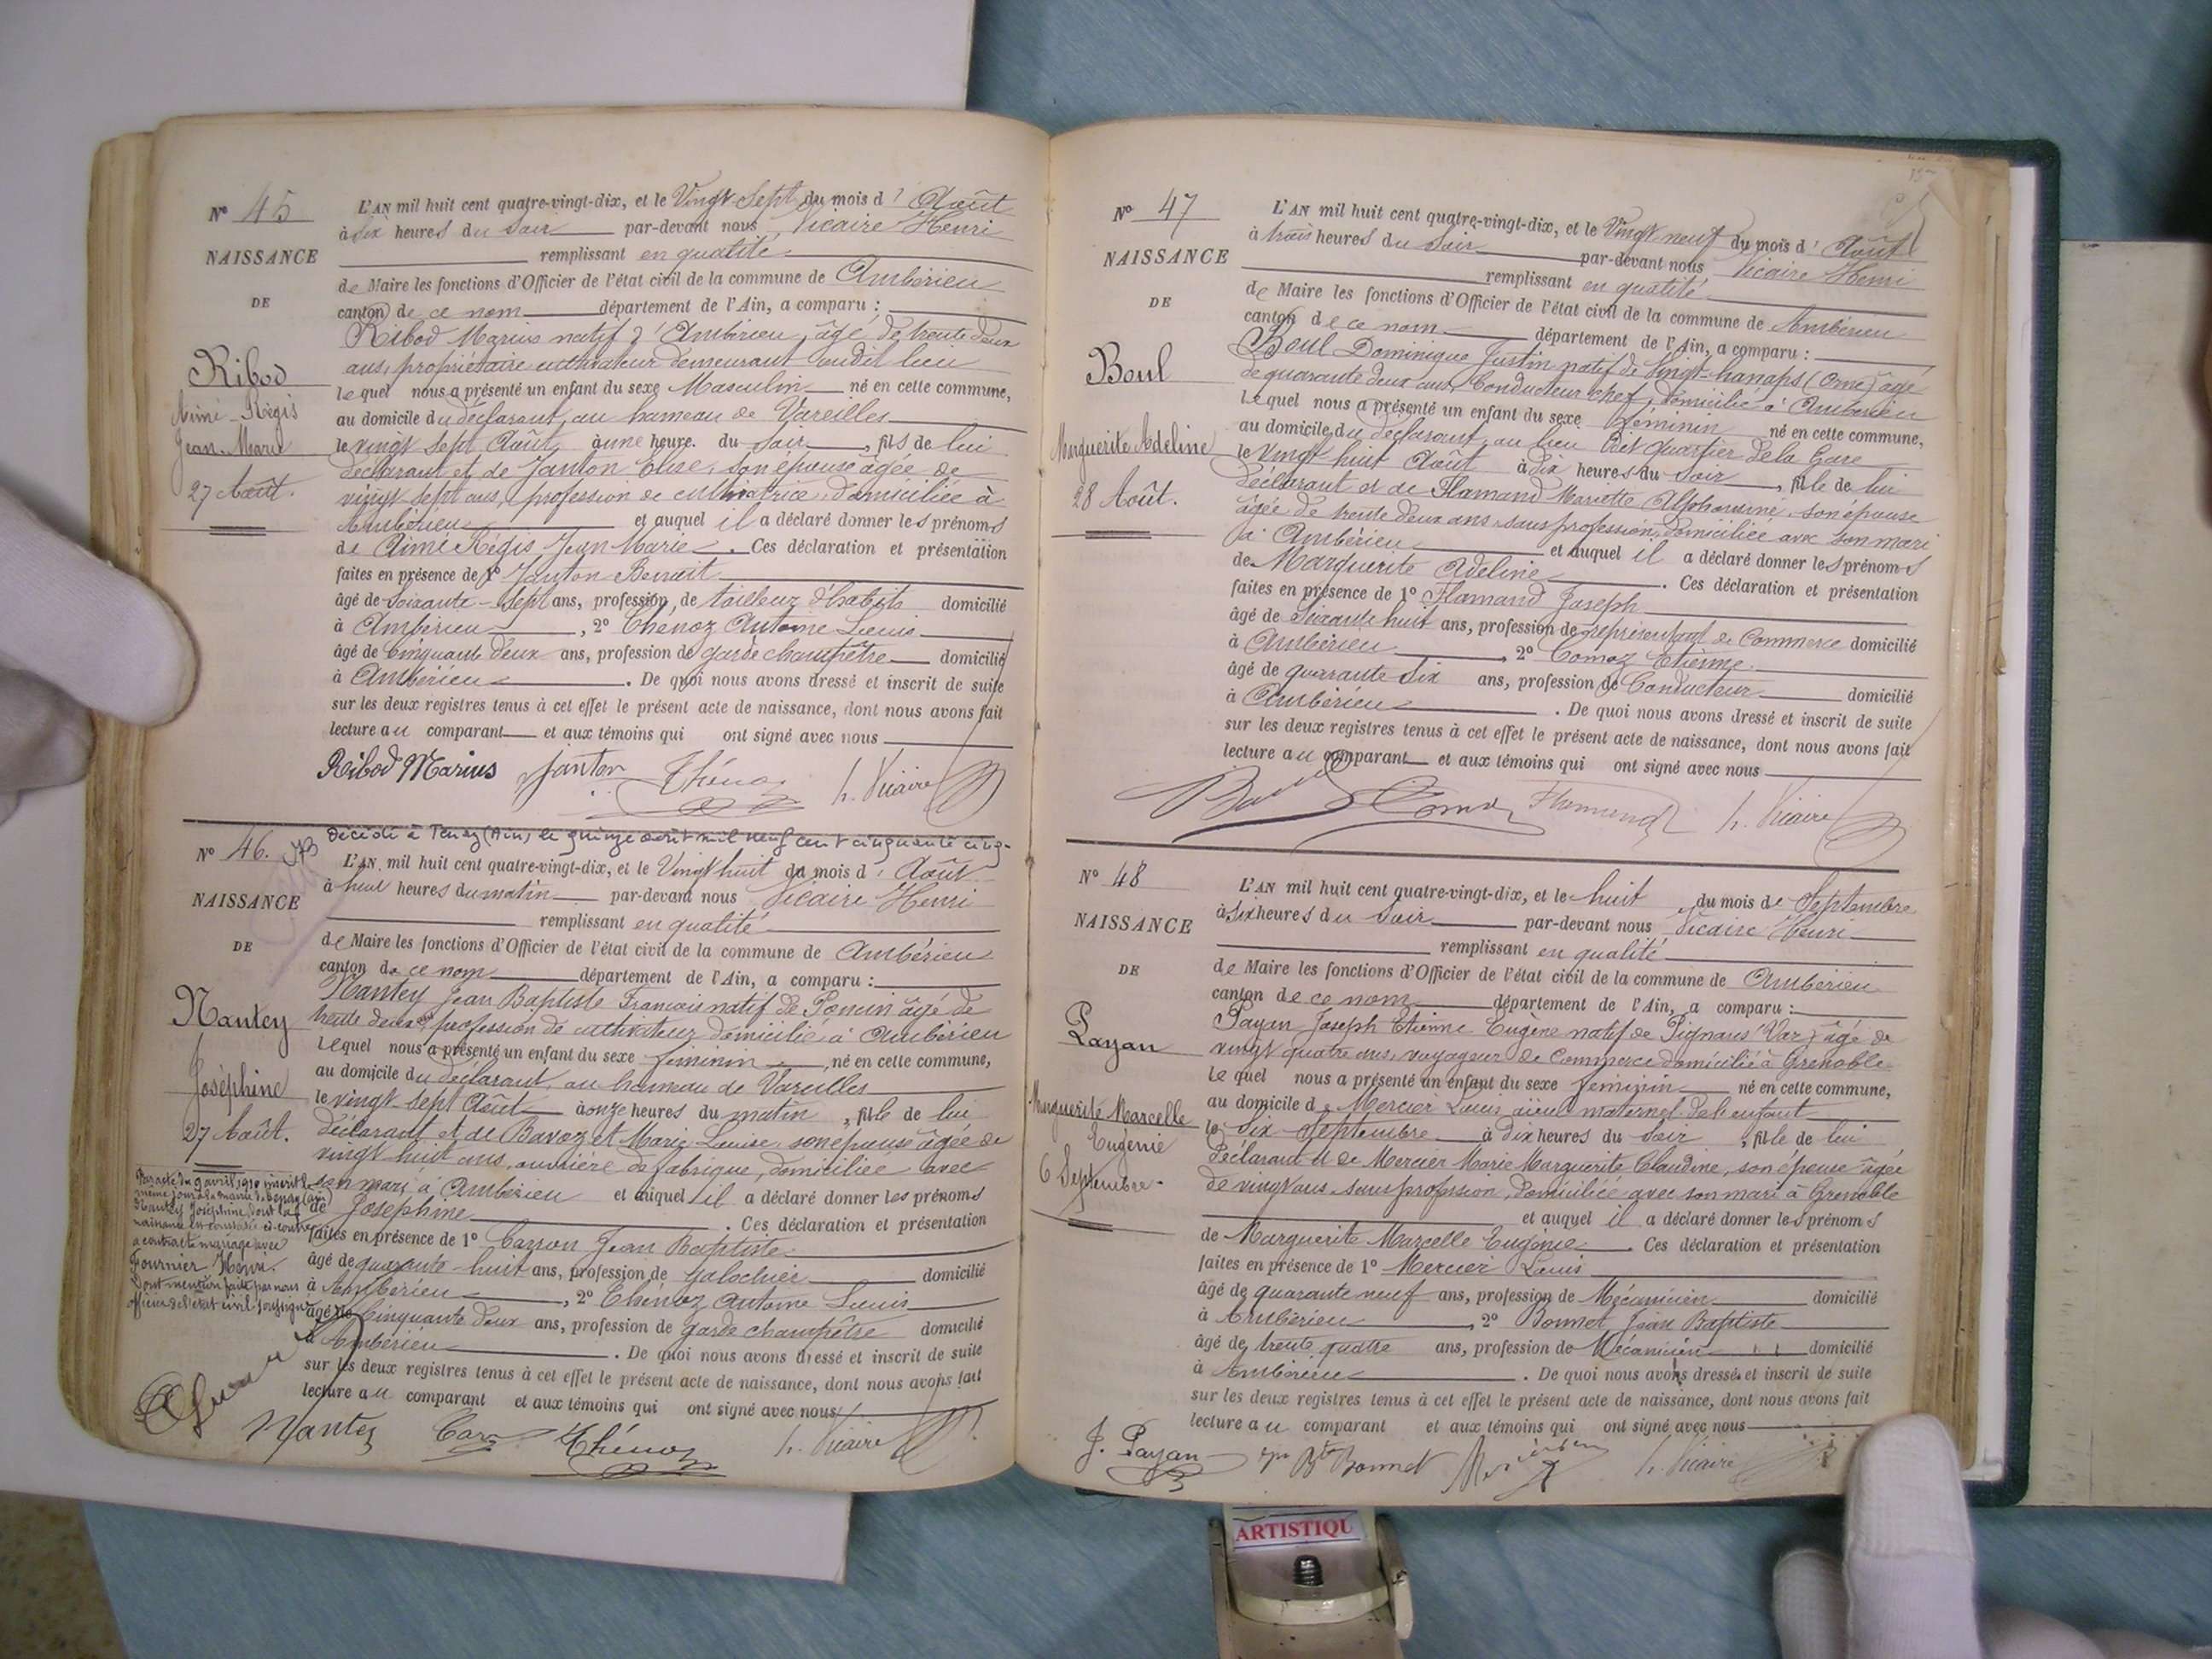 N° 45
NAISSANCE
DE
Ribod
Aimé-Régis
Jean-Marie
27 Août.
L'AN mil huit cent quatre-vingt-dix, et le Vingt-Sept du mois d'Août
à six heures du Soir par-devant nous Vicaire Henri
remplissant en qualité
de Maire les fonctions d'Officier de l'état civil de la commune de Ambérieu
canton de ce nom département de l'Ain, a comparu :
Ribod Marius natif d'Ambérieu, âgé de trente deux
ans, propriétaire cultivateur demeurant audit lieu
lequel nous a présenté un enfant du sexe Masculin né en cette commune,
au domicile du déclarant, au hameau de Vareilles
le vingt sept Août à une heure du soir, fils de lui
déclarant et de Janton Elise, son épouse âgée de
vingt sept ans, profession de cultivatrice, domiciliée à
Ambérieu et auquel il a déclaré donner les prénoms
de Aimé Régis Jean Marie. Ces déclaration et présentation
faites en présence de 1° Janton Benoit
âgé de soixante-sept ans, profession de tailleur d'habits domicilié
à Ambérieu, 2° Chénoz Antoine Louis
âgé de Cinquante deux ans, profession de garde champêtre domicilié
à Ambérieu. De quoi nous avons dressé et inscrit de suite
sur les deux registres tenus à cet effet le présent acte de naissance, dont nous avons fait
lecture au comparant et aux témoins qui ont signé avec nous
Ribod Marius Janton Chénoz h. Vicaire
Décédée à Tenay (Ain) le quinze août mil neuf cent cinquante cinq.
N° 46.
NAISSANCE
DE
Nantey
Joséphine
27 Août.
Par acte du 9 avril 1910 inscrit le
même jour à la mairie de Tenay (Ain)
Nantey Joséphine, dont la
naissance est constatée ci-contre
a contracté mariage avec
Fournier Henri.
Dont mention faite par nous
officier de l'état civil soussigné
L'AN mil huit cent quatre-vingt-dix, et le Vingt huit du mois d'Août
à heures du matin par-devant nous Vicaire Henri
remplissant en qualité
de Maire les fonctions d'Officier de l'état civil de la commune de Ambérieu
canton de ce nom département de l'Ain, a comparu :
Nantey Jean Baptiste François natif de Poncin âgé de
trente deux ans profession de cultivateur domicilié à Ambérieu
Lequel nous a présenté un enfant du sexe féminin, né en cette commune,
au domicile du déclarant, au hameau de Vareilles
le vingt-sept Août à onze heures du matin, fille de lui
déclarant et de Bavozet Marie Louise son épouse âgée de
vingt huit ans, ouvrière de fabrique, domiciliée avec
son mari à Ambérieu et auquel il a déclaré donner les prénoms
de Joséphine. Ces déclaration et présentation
faites en présence de 1° Carron Jean Baptiste
âgé de quarante-huit ans, profession de Galochier domicilié
à Ambérieu, 2° Chénoz Antoine Louis
âgé de Cinquante deux ans, profession de garde champêtre domicilié
à Ambérieu. De quoi nous avons dressé et inscrit de suite
sur les deux registres tenus à cet effet le présent acte de naissance, dont nous avons fait
lecture au comparant et aux témoins qui ont signé avec nous
Nantey Chénoz h. Vicaire
N° 47
NAISSANCE
DE
Boul
Marguerite Adeline
28 Août.
L'AN mil huit cent quatre-vingt-dix, et le Vingt neuf du mois d'Août
à trois heures du soir par-devant nous Vicaire Henri
remplissant en qualité
de Maire les fonctions d'Officier de l'état civil de la commune de Ambérieu
canton de ce nom département de l'Ain, a comparu :
Boul Dominique Justin natif de Vingt-hanaps (Orne) âgé
de quarante deux ans, Conducteur chef, domicilié à Ambérieu
Lequel nous a présenté un enfant du sexe Féminin né en cette commune,
au domicile du déclarant, au lieu dit quartier de la Gare
le vingt-huit Août à dix heures du soir, fille de lui
déclarant et de Flamand Mariette Alphonsine, son épouse
âgée de trente deux ans, sans profession, domiciliée avec son mari
à Ambérieu et auquel il a déclaré donner les prénoms
de Marguerite Adeline. Ces déclaration et présentation
faites en présence de 1° Flamand Joseph
âgé de Soixante huit ans, profession de représentant de Commerce domicilié
à Ambérieu, 2° Comoz Etienne
âgé de quarante six ans, profession de Conducteur domicilié
à Ambérieu. De quoi nous avons dressé et inscrit de suite
sur les deux registres tenus à cet effet le présent acte de naissance, dont nous avons fait
lecture au comparant et aux témoins qui ont signé avec nous
Boul Comoz Flamand h. Vicaire
N° 48
NAISSANCE
DE
Payan
Marguerite Marcelle
Eugénie
6 Septembre.
L'AN mil huit cent quatre-vingt-dix, et le huit du mois de Septembre
à six heures du Soir par-devant nous Vicaire Henri
remplissant en qualité
de Maire les fonctions d'Officier de l'état civil de la commune de Ambérieu
canton de ce nom département de l'Ain, a comparu :
Payan Joseph Etienne Eugène natif de Pignans (Var) âgé de
vingt quatre ans, voyageur de Commerce domicilié à Grenoble
Lequel nous a présenté un enfant du sexe féminin né en cette commune,
au domicile de Mercier Louis aïeul maternel de l'enfant
le Six Septembre à dix heures du Soir, fille de lui
déclarant et de Mercier Marie Marguerite Claudine, son épouse âgée
de vingt ans, sans profession, domiciliée avec son mari à Grenoble
et auquel il a déclaré donner les prénoms
de Marguerite Marcelle Eugénie. Ces déclaration et présentation
faites en présence de 1° Mercier Louis
âgé de quarante neuf ans, profession de Mécanicien domicilié
à Ambérieu, 2° Bonnet Jean Baptiste
âgé de trente quatre ans, profession de Mécanicien domicilié
à Ambérieu. De quoi nous avons dressé et inscrit de suite
sur les deux registres tenus à cet effet le présent acte de naissance, dont nous avons fait
lecture au comparant et aux témoins qui ont signé avec nous
J. Payan Bonnet h. Vicaire
ARTISTIQU